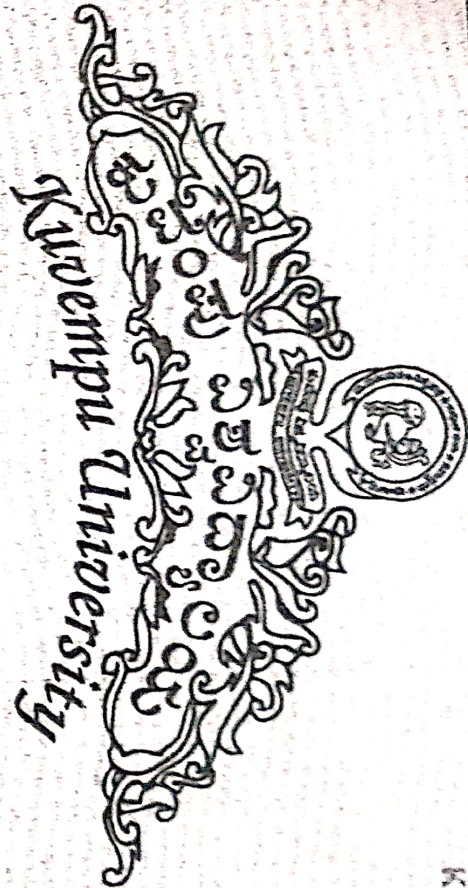 ಕುವೆಂಪು ವಿಶ್ವವಿದ್ಯಾಲಯ
Kuvempu University
K